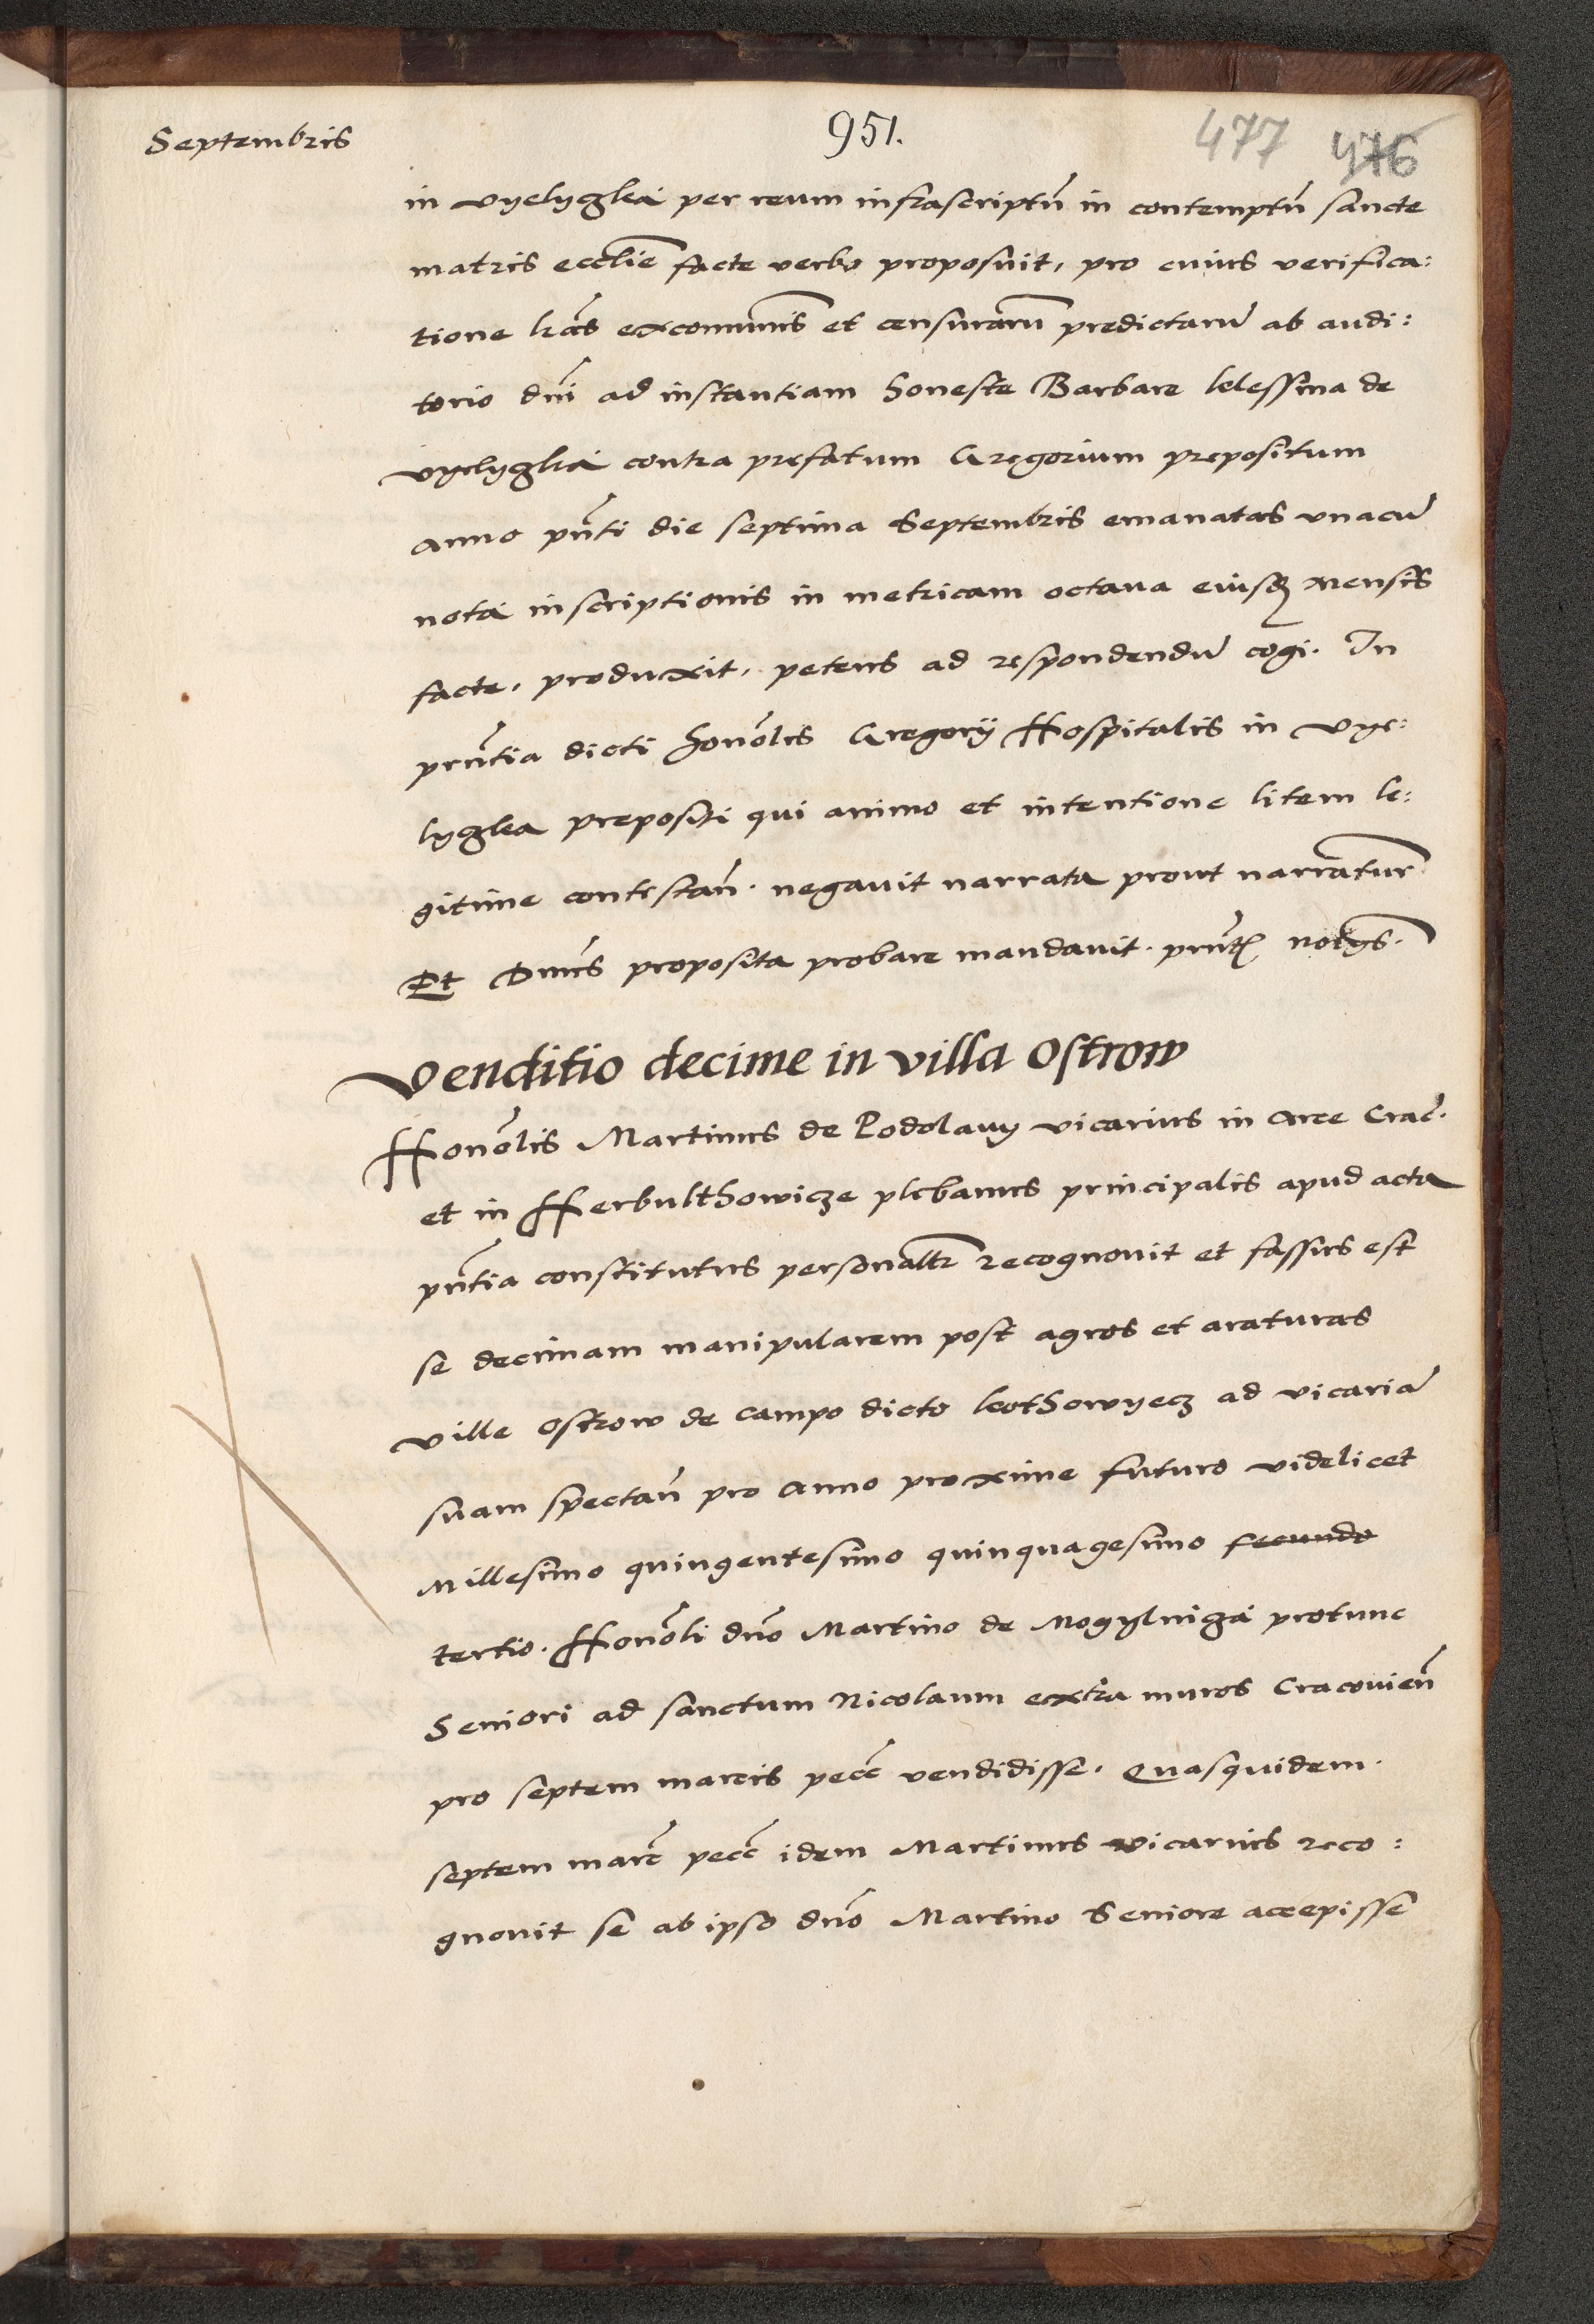 Septembris
951.
477 476
in vyelyglia per reum infrascriptũ in contemptũ sancte
matris ecclie facte verbo proposuit, pro cuius verifica:
tione lras excomunis et censurarũ predictarũ ab audi:
torio dni ad instantiam honeste Barbare klessina de
vyelyglia contra prefatum Gregorium prepositum
anno pnti die septima Septembris emanatas vnacũ
nota inscriptionis in metricam octava eiusq mensis
facte, produxit, petens ad respondendũ cogi. In
prntia dicti honolis Gregorij Hospitalis in vye:
lyglia prepositi qui animo et intentione litem le:
gitime contestañ. negavit narrata prout narrantur
Et Dnus proposita probare mandavit. prntᵬ
Venditio decime in villa Ostrow
Honolis Martinus de Podolany vicarius in arce Crac.
et in Herbulthowicze plebanus principalis apud acta
pntia constitutus personaltr recognovit et fassus est
se decimam manipularem post agros et araturas
ville Ostrow de campo dicto kothowyecz ad vicariã
suam spectañ pro anno proxime futuro videlicet
Millesimo quingentesimo quinquagesimo secundo
tertio. Honoli dno Martino de Mogylnicza protunc
Seniori ad sanctum Nicolaum extra muros Cracovieñ
pro septem marcis pecc vendidisse. Quasquidem
septem marc pecc idem Martinus vicarius reco:
gnovit se ab ipso dno Martino Seniore accepisse